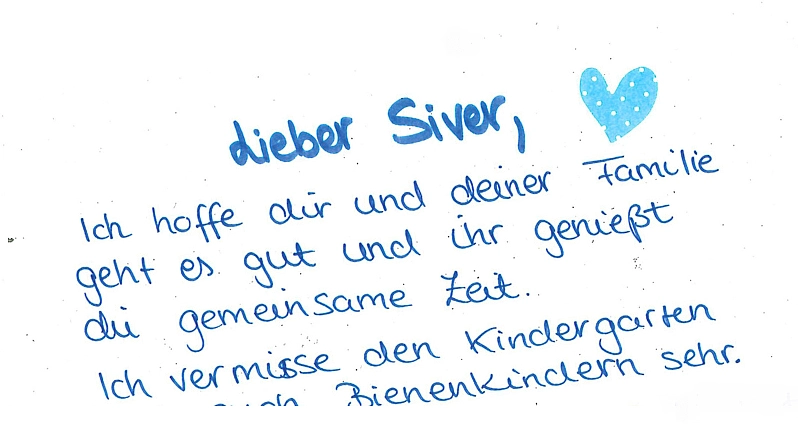 Lieber Siver,
Ich hoffe dir und deiner Familie
geht es gut und ihr genießt
die gemeinsame Zeit.
Ich vermisse den Kindergarten
Bienenkindern sehr.